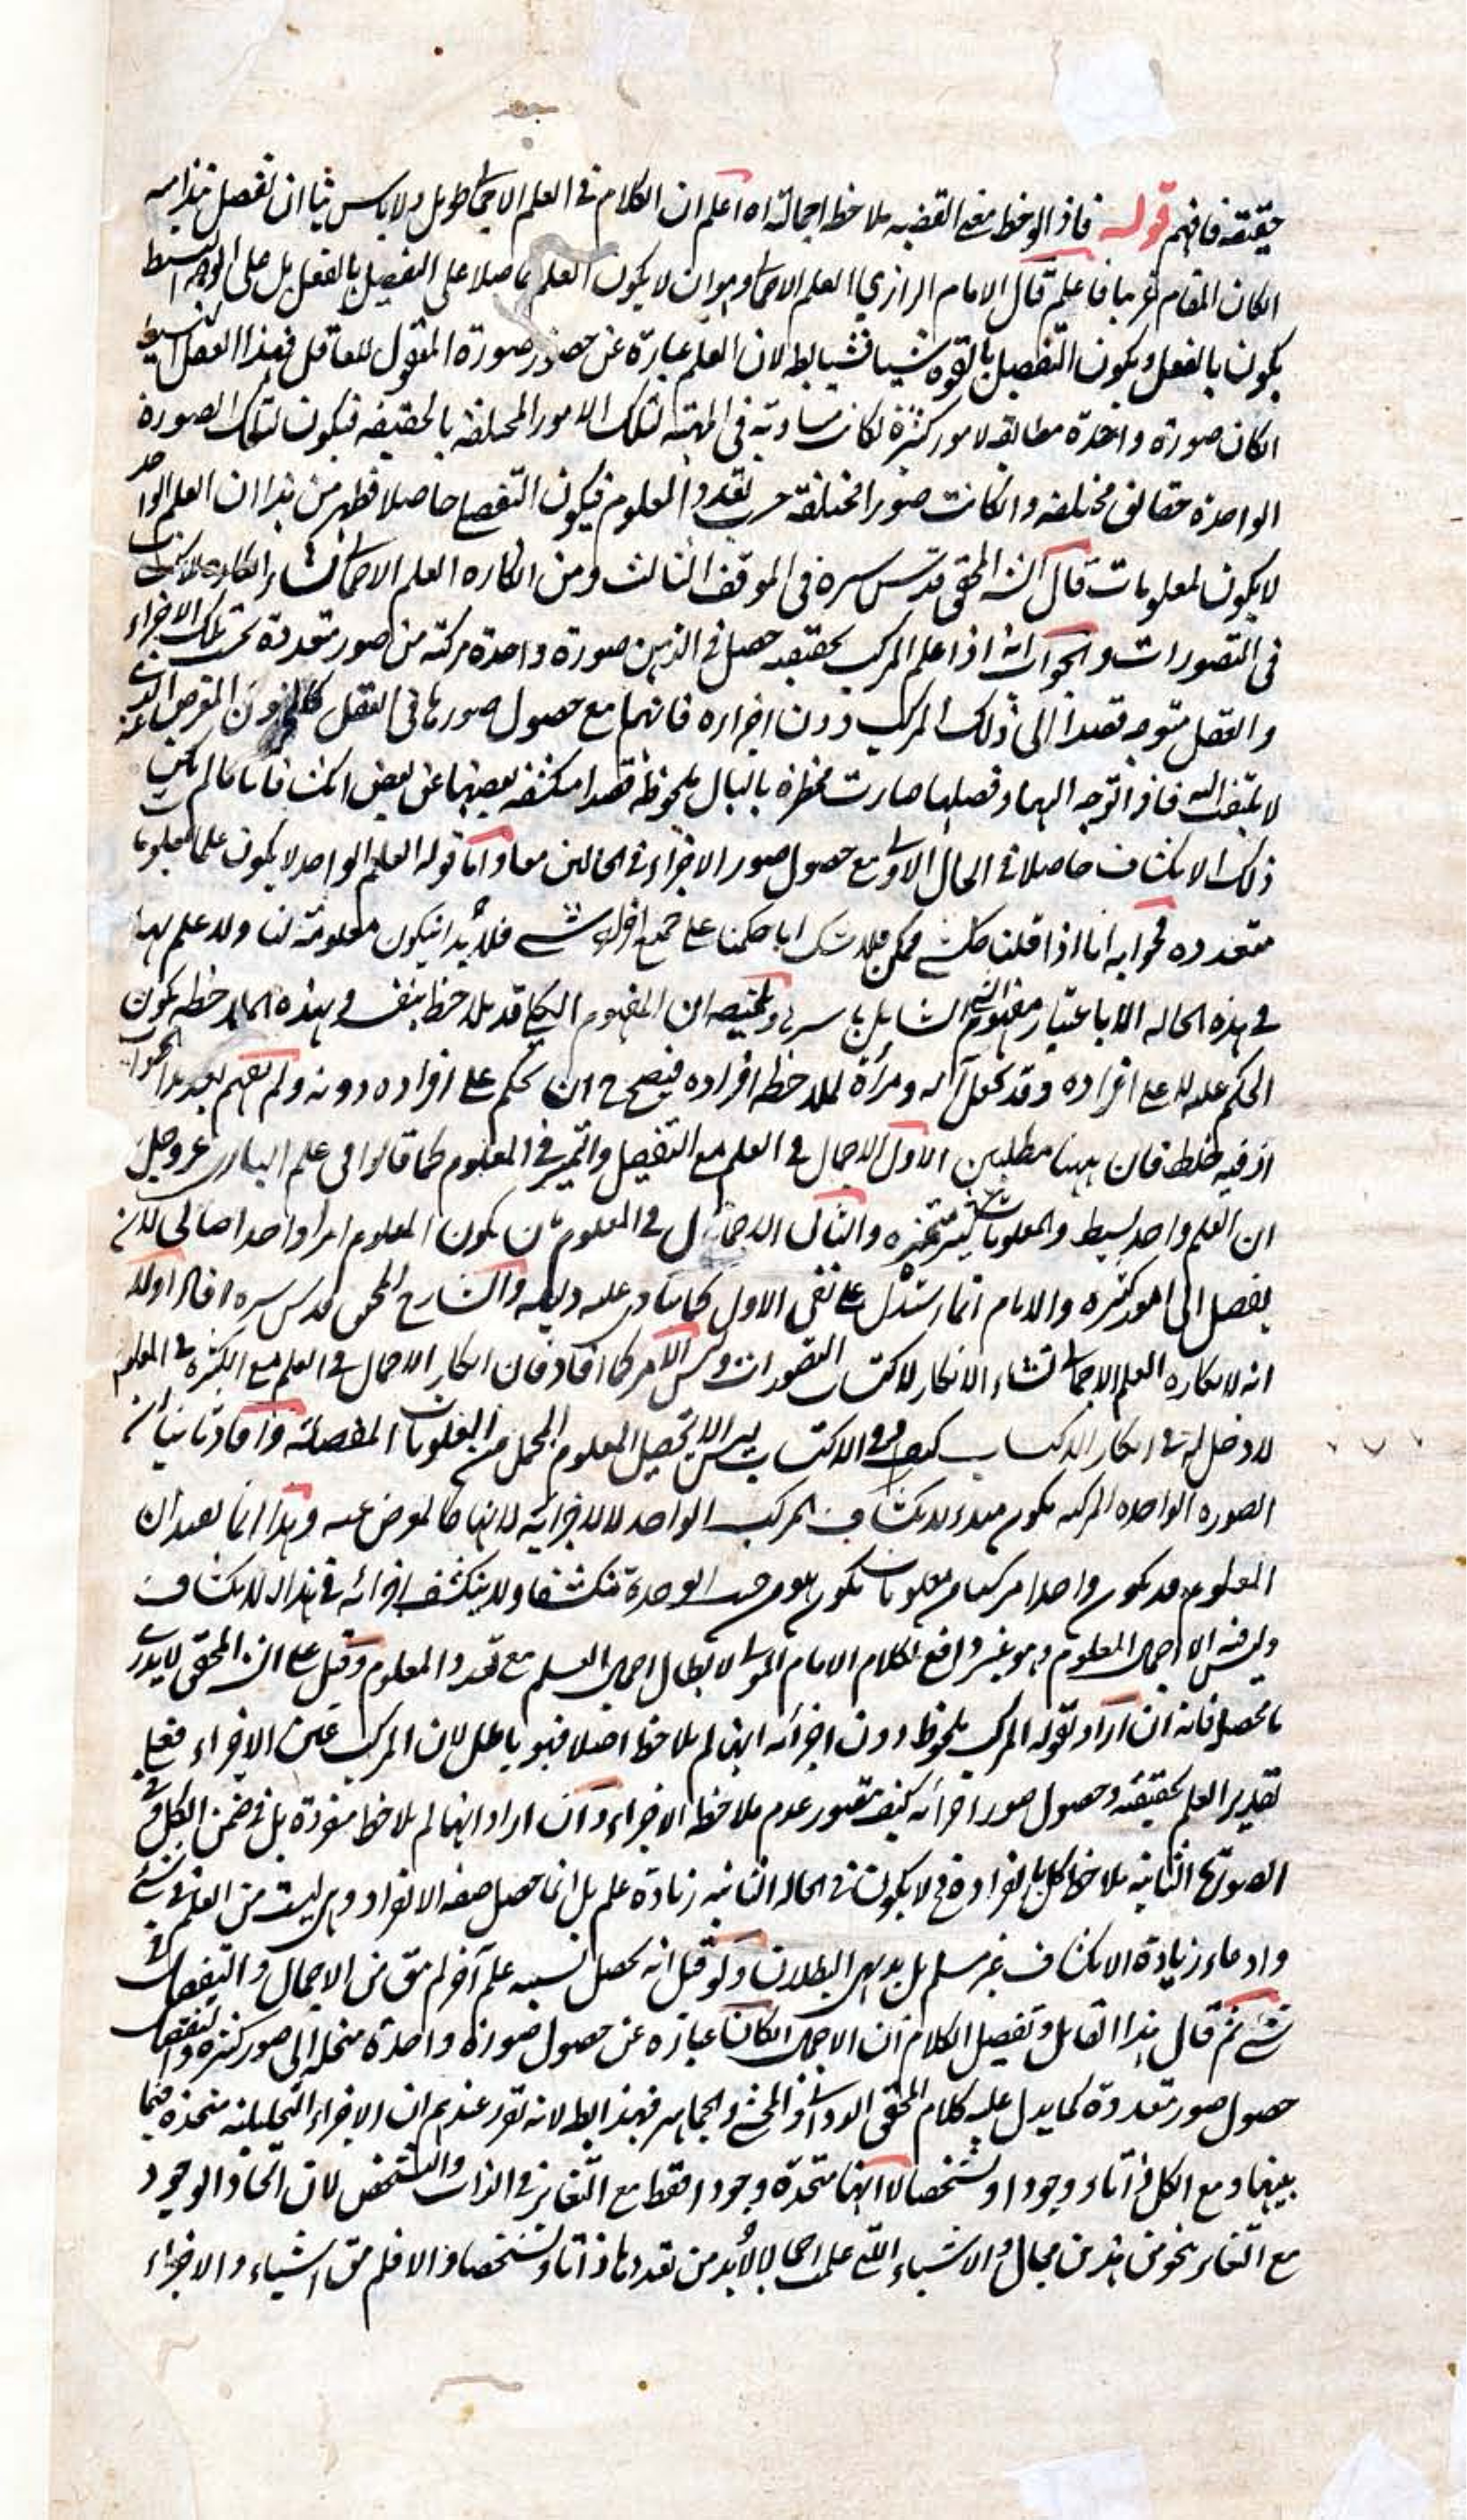 حقيقته فافهم قوله فاذا لوحظ معنى القضيه ملاحظه اجمالية اه اعلم ان الكلام في العلم الاجمالي طويل ولا باس بنا ان نفصل نبذا منه
انكان المقام غريبا فاعلم قال الامام الرازي العلم الاجمالي وهو ان لا يكون العلم حاصلا على التفصيل بالفعل بل على الوجه البسيط
يكون بالفعل ويكون التفصيل بالقوه شيا فشيا بط لان العلم عبارة عن حضور صورة المعقول للعاقل فهذا العقل البسيط
انكان صورة واحدة مطابقه لامور كثيرة لكانت مساوية في المهية لتلك الامور المختلفه بالحقيقه فيكون لتلك الصورة
الواحدة حقائق مختلفه وانكانت صورا مختلفة حسب تعدد المعلوم فيكون التفصيل حاصلا فظهر من هذا ان العلم الواحد
لا يكون لمعلومات قال الش المحقق قدس سره في الموقف الثالث ومن انكاره العلم الاجمالي نشاء انكاره الاكتساب
في التصورات والجواب انه اذا علم المركب بحقيقته حصل في الذهن صورة واحدة مركبة من صور متعددة بحسب تلك الاجزاء
والعقل متوجه قصدا الى ذلك المركب دون اجزاءه فانها مع حصول صورها في العقل كالمخزون المعرض عنه الذي
لا يلتفت اليه فاذا توجه اليها وفصلها صارت مخطرة بالبال ملحوظة قصدا منكشفه بعضها عن بعض انكشافا تاما لم يكن
ذلك الانكشاف حاصلا في الحال الاولى مع حصول صور الاجزاء في الحالين معا واما قوله العلم الواحد لا يكون علما بمعلومات
متعدده فجوابه انا اذا قلنا كل شي ممكن فلا شك انا حكمنا على جميع افراد شي فلا بد ان يكون معلومة لنا ولا علم بها
في هذه الحاله الا باعتبار مفهوم الشي الشامل باسرها وتلخيصه ان المفهوم الكلي قد يلاحظ بنفسه وبهذه الملاحظه يكون
الحكم عليه لا على افراده وقد يجعل آله ومرآة لملاحظه افراده فيصح ح ان يحكم على افراده دونه ولم افهم بعد هذا الجواب
اذ فيه خلط فان ههنا مطلبين الاول الاجمال في العلم مع التفصيل والتميز في المعلوم كما قالوا في علم الباري عز وجل
ان العلم واحد بسيط والمعلومات كثيرة متميزه والثاني الاجمال في المعلوم بان يكون المعلوم امرا واحدا صالحا لان
يفصل الى امور كثيره والامام انما استدل على نفي الاول كما ينادي عليه دليله والشارح المحقق قدس سره افاد اولا
انه لانكاره العلم الاجمالي نشاء الانكار لاكتساب التصورات وليس الامر كما افاد فان انكار الاجمال في العلم مع الكثرة في المعلوم
لا دخل له في انكار الاكتساب كيف وفي الاكتساب ليس الا تحصيل المعلوم المجمل من المعلومات المفصلة وافاد ثانيا ان
الصوره الواحده المركبه يكون مبدء لانكشاف المركب الواحد لا لاجزائه لانها كالمعرض عنه وهذا انما يفيد ان
المعلوم قد يكون واحدا مركبا من معلومات يكون هو من حيث الوحدة منكشفا ولا ينكشف اجزائه في هذا الانكشاف
وليس فيه الا اجمال المعلوم وهو غير دافع لكلام الامام المؤسس لابطال اجمال العلم مع تعدد المعلوم وقيل على الش المحقق لا يدرى
ما محصله فانه ان اراد بقوله المركب ملحوظ دون اجزائه انها لم يلاحظ اصلا فهو باطل لان المركب عين الاجزاء فعلى
تقدير العلم بحقيقته وحصول صور اجزائه كيف يتصور عدم ملاحظه الاجزاء وان اراد انها لم يلاحظ منفردة بل في ضمن الكل وفي
الصورة الثانية يلاحظ كل بانفراده فح لا يكون في الحاله الثانيه زيادة علم بل انما حصل صفه الانفراد وهي ليست من العلم في شي
وادعاء زيادة الانكشاف غير مسلم بل بديهي البطلان ولو قيل انه يحصل بسببه علم آخر لم يبق من الاجمال والتفصيل في
شي ثم قال هذا القائل وتفصيل الكلام ان الاجمال انكان عبارة عن حصول صورة واحدة منحله الى صور كثيرة والتفصيل
حصول صور متعددة كما يدل عليه كلام المحقق الدواني والمحشي والجماهير فهذا بط لانه تقرر عندهم ان الاجزاء التحليليه متحدة فيما
بينها ومع الكل ذاتا ووجودا وتشخصا لا انها متحدة وجودا فقط مع التغاير في الذات والتشخص لان اتحاد الوجود
مع التغاير نحو من هذين محال والاشياء التي علمت اجمالا لا بد من تعددها ذاتا وتشخصا والا فلم يبق اشياء والاجزاء